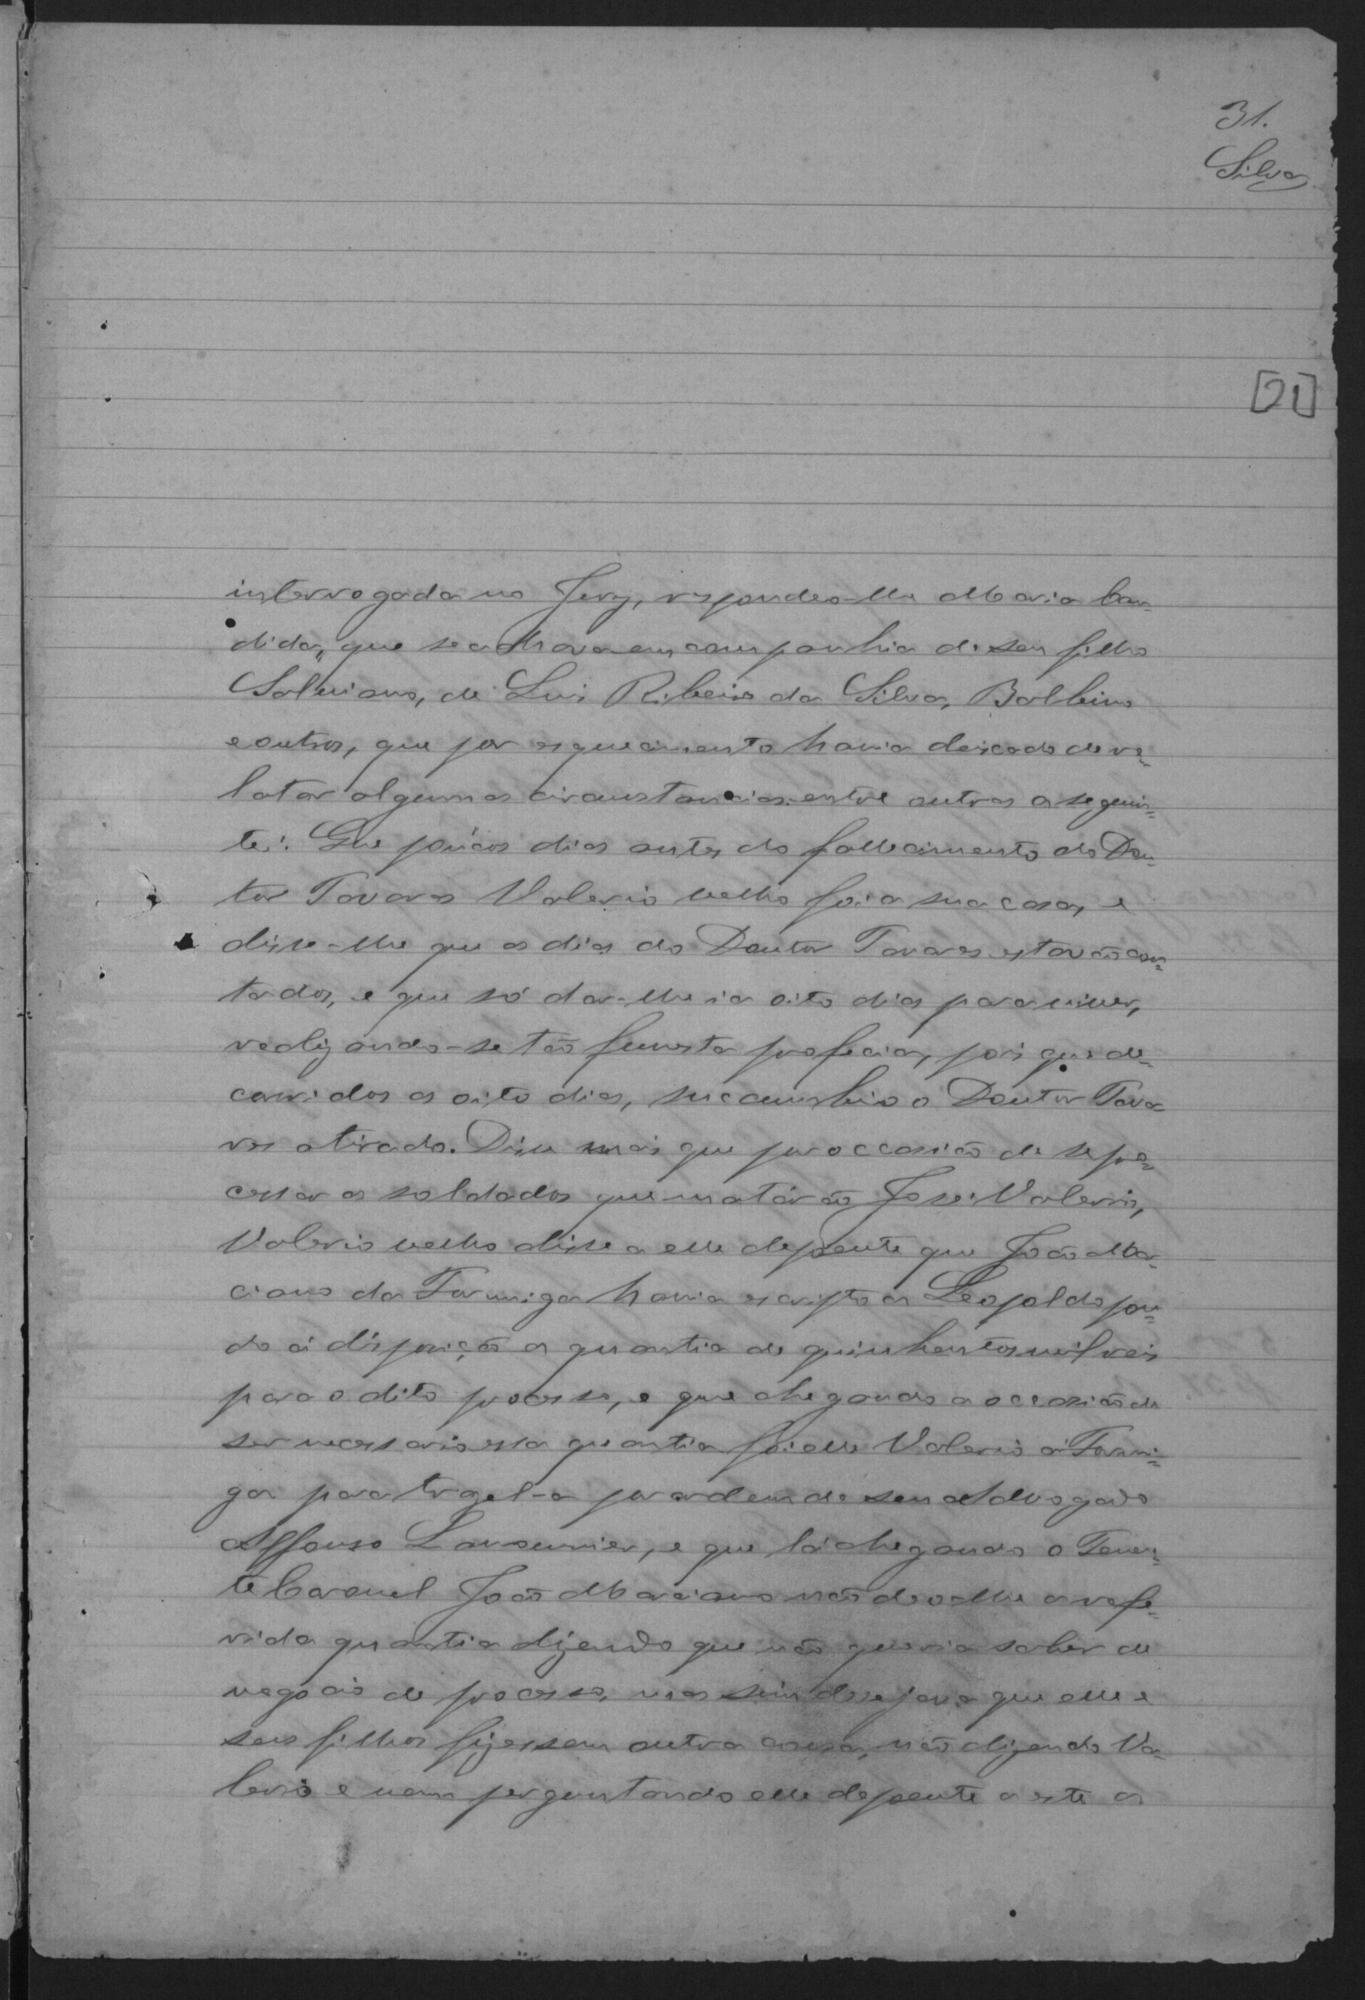 31.
Silva
[21]
interrogada no Jury, respondeo-lhe Maria Can-
dida, que se achava em companhia de seu filho
Salviano, de Luis Ribeiro da Silva, Balbino
e outros, que por esquecimento havia deixado de re-
latar algumas circunstancias entre outras a seguin-
te: Que poucos dias antes do fallecimento do Dou-
tor Tavares Valerio velho foi a sua casa, e
disse-lhe que os dias do Doutor Tavares estavão con-
tados, e que só dar-lhe ia oito dias para viver,
realizando-se tão funesta profecia, pois que de-
corridos os oito dias, succumbio o Doutor Tava-
res atirado. Disse mais que por occasião de se pro-
cessar os soldados que matárão José Valerio,
Valerio velho disse a elle depoente que João Mar-
ciano da Formiga havia escripto a Leopoldo pon-
do á disposição a quantia de quinhentos mil reis
para o dito processo, e que chegando a occasião de
ser necessario essa quantia foi elle Valerio á Formi-
ga para trazel-a por ordem de seu Advogado
Affonso Lamounier, e que lá chegando o Tenen-
te Coronel João Marciano não deo-lhe a refe-
rida quantia dizendo que não queria saber de
negocio de processo, mas sim desejava que elle e
seus filhos fizessem outra cousa, não dizendo Va-
lerio e nem perguntando elle depoente a este a